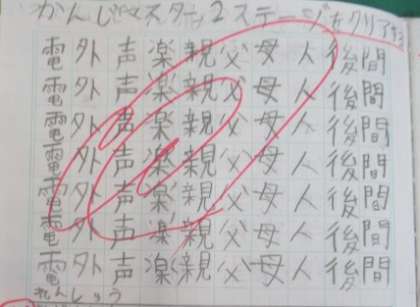 かんじマスター2ステージをクリアする
電外声楽親父母人後間
電外声楽親父母人後間
電外声楽親父母人後間
電外声楽親父母人後間
電外声楽親父母人後間
電外声楽親父母人後間
電外声楽親父母人後間
れんしゅう